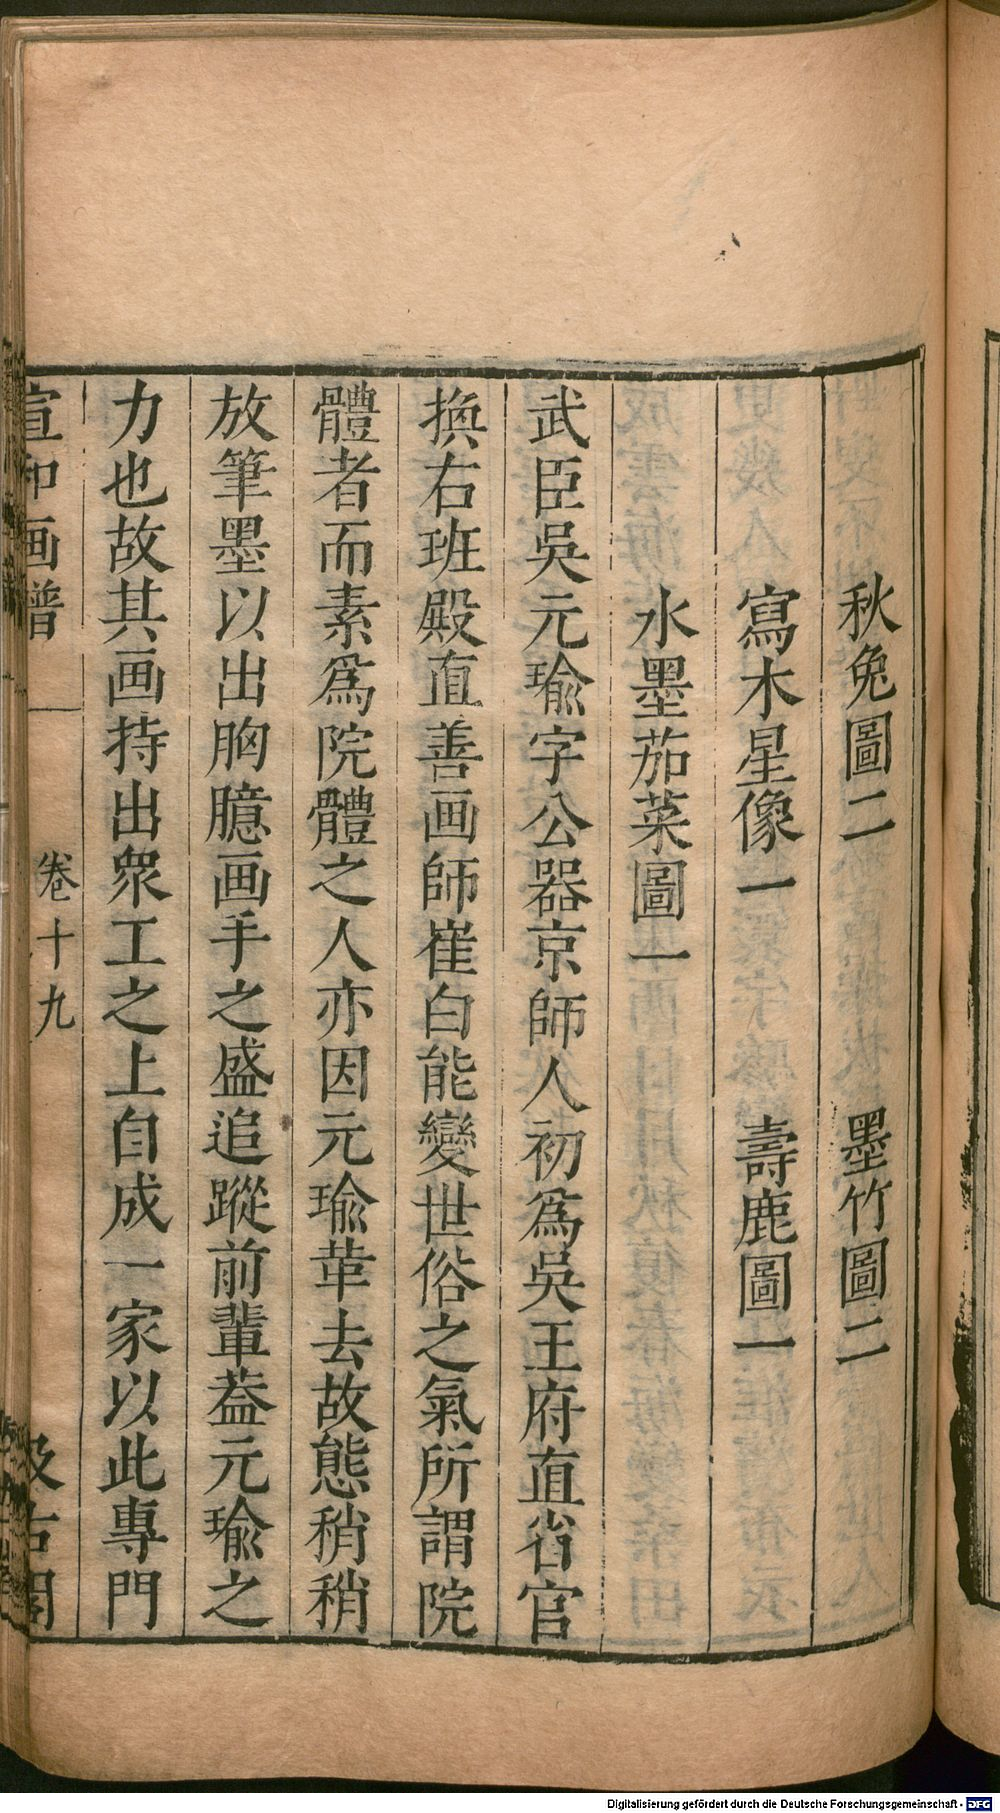 秋兔圖二　墨竹圖二
寫木星像一　壽鹿圖一
水墨茄菜圖一
武臣吳元瑜字公器京師人初爲吳王府直省官
換右班殿直善画師崔白能變世俗之氣所謂院
體者而素爲院體之人亦因元瑜革去故態稍稍
放筆墨以出胸臆画手之盛追蹤前輩葢元瑜之
力也故其画持出衆工之上自成一家以此專門
宣和画譜　卷十九　汲古閣
Digitalisierung gefördert durch die Deutsche Forschungsgemeinschaft - DFG